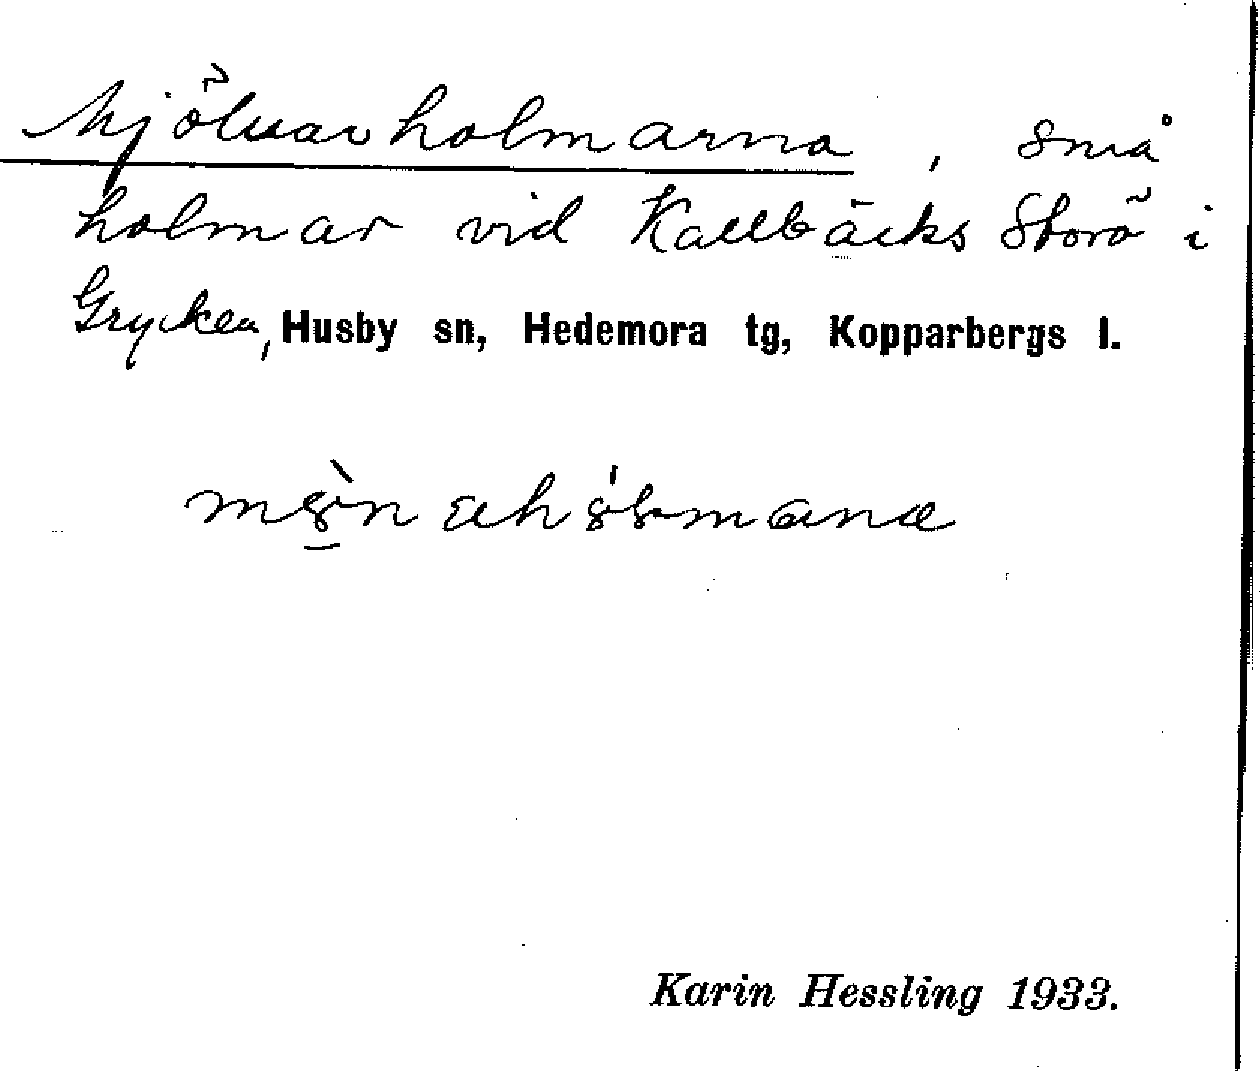 Mjölnarholmarna, små
holmar vid Kallbäcks Storö i
Grycken, Husby sn, Hedemora tg, Kopparbergs l.
Karin Hessling 1933.